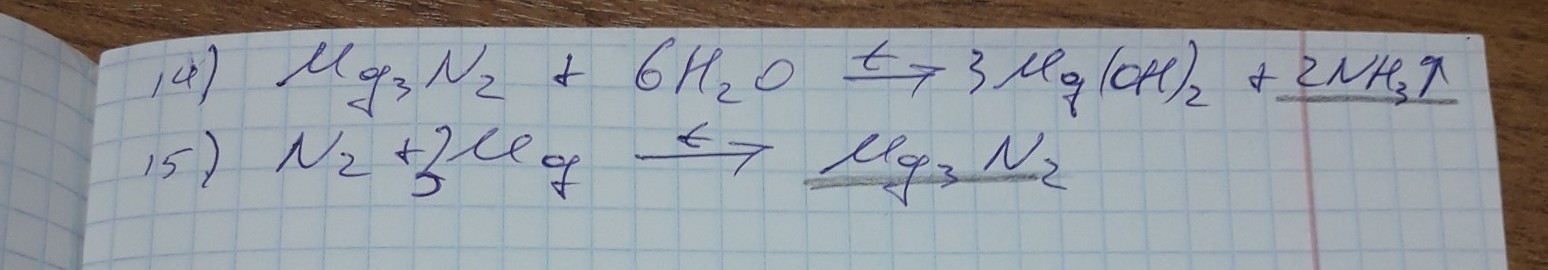 14) Mg₃N₂ + 6H₂O →ᵗ 3Mg(OH)₂ + 2NH₃↑
15) N₂ + 3Mg →ᵗ Mg₃N₂